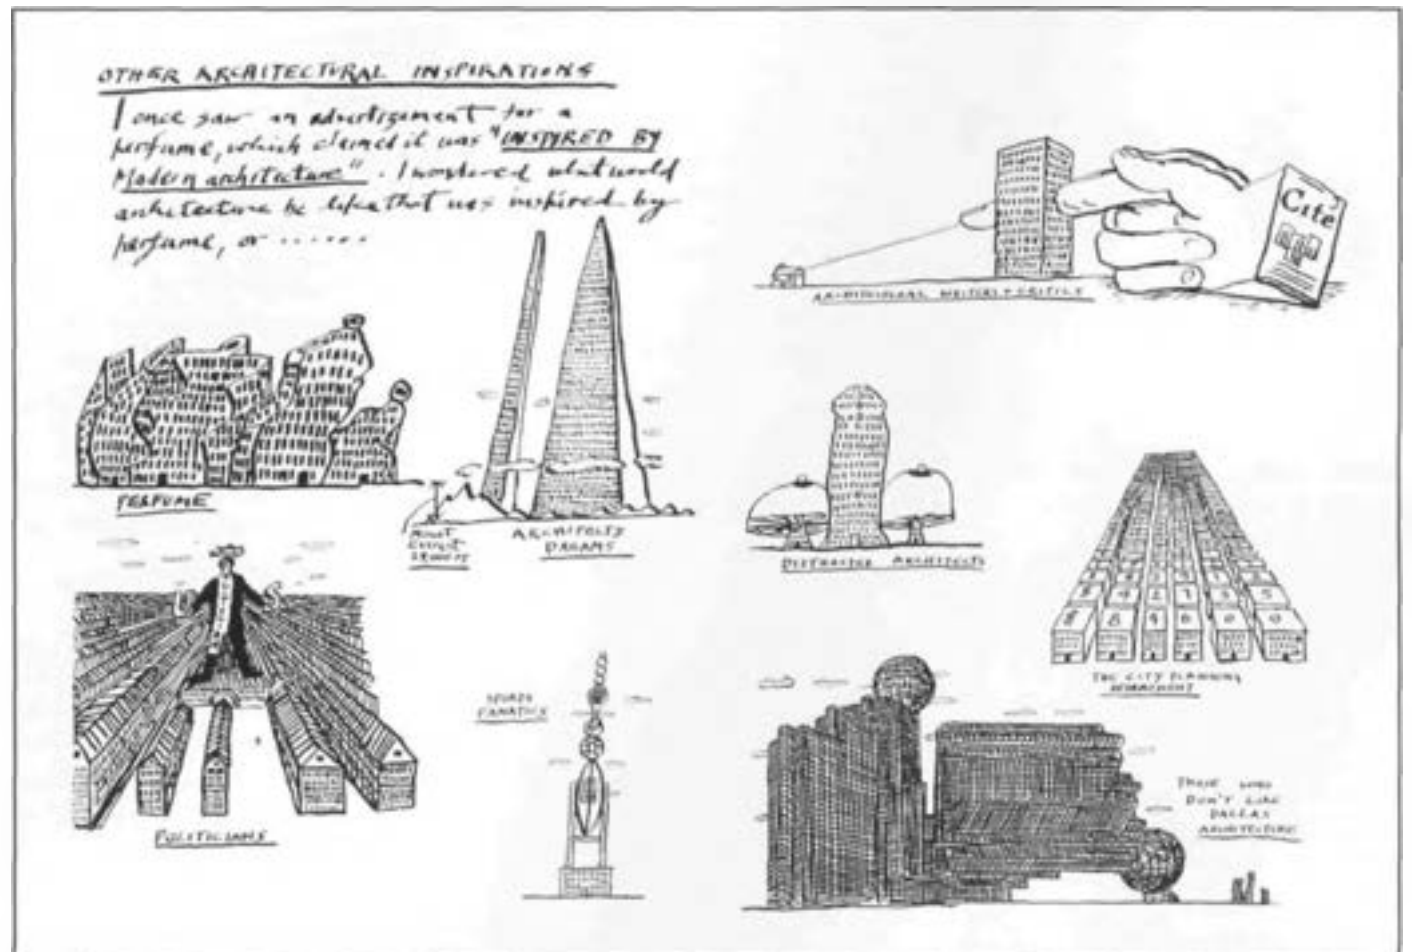 OTHER ARCHITECTURAL INSPIRATIONS
I once saw an advertizement for a
perfume, which claimed it was "INSPIRED BY
Modern architecture". I wondered what would
architecture be like that was inspired by
perfume, or ......
Cite
ARCHITECTURAL WRITERS + CRITICS
PERFUME
MOUNT
EVEREST
ARCHITECTS
DREAMS
ARCHITECTS
THE CITY PLANNING
DEPARTMENT
POLITICIANS
SPORTS
FANATICS
THOSE WHO
DON'T LIKE
DALLAS
ARCHITECTURE